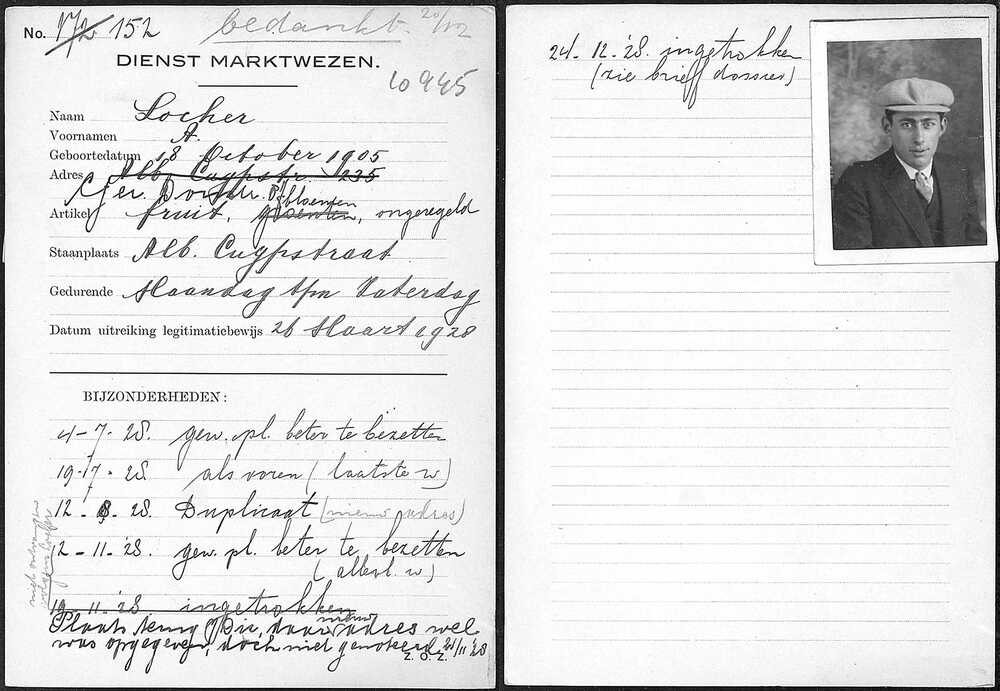 No. 172 152 bedankt. 20/12
DIENST MARKTWEZEN.
10945
Naam Locher
Voornamen A.
Geboortedatum 18 October 1905
Adres Alb. Cuypstr. 235
Ger. Doustr.
bloemen
Artikel fruit, groenten, ongeregeld
Staanplaats Alb. Cuypstraat
Gedurende Maandag t/m Zaterdag
Datum uitreiking legitimatiebewijs 26 Maart 1928
BIJZONDERHEDEN:
4-7-28. gew. pl. beter te bezetten
19-7-28 als voren (laatste w)
12-8-28. Duplicaat (nieuw adres)
12-11-'28. gew. pl. beter te bezetten
(allerl. w)
niet ontvangen volgens
19-11-'28 ingetrokken
nieuw
Plaats terug , daar adres wel
was opgegeven, doch niet genoteerd. 21/11 '28
Z.O.Z.
24-12-'28. ingetrokken
(zie brief dossier)